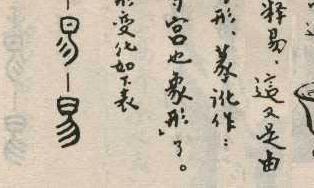 释易，這又是由
形，篆讹作：
宫也象形」了。
形变化如下表
易—易